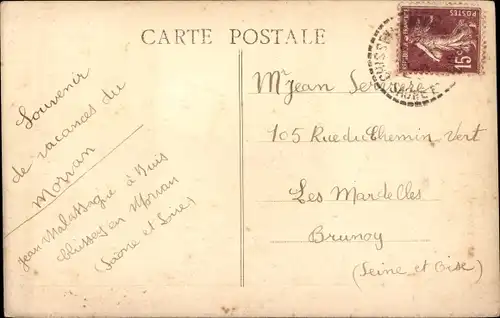 CARTE POSTALE
Souvenir
de vacances du
Morvan
Jean à
en Morvan
(Saône et Loire)
POSTES
15c
Mr Jean
105 Rue du Chemin Vert
Les Mardelles
Brunoy
(Seine et Oise)